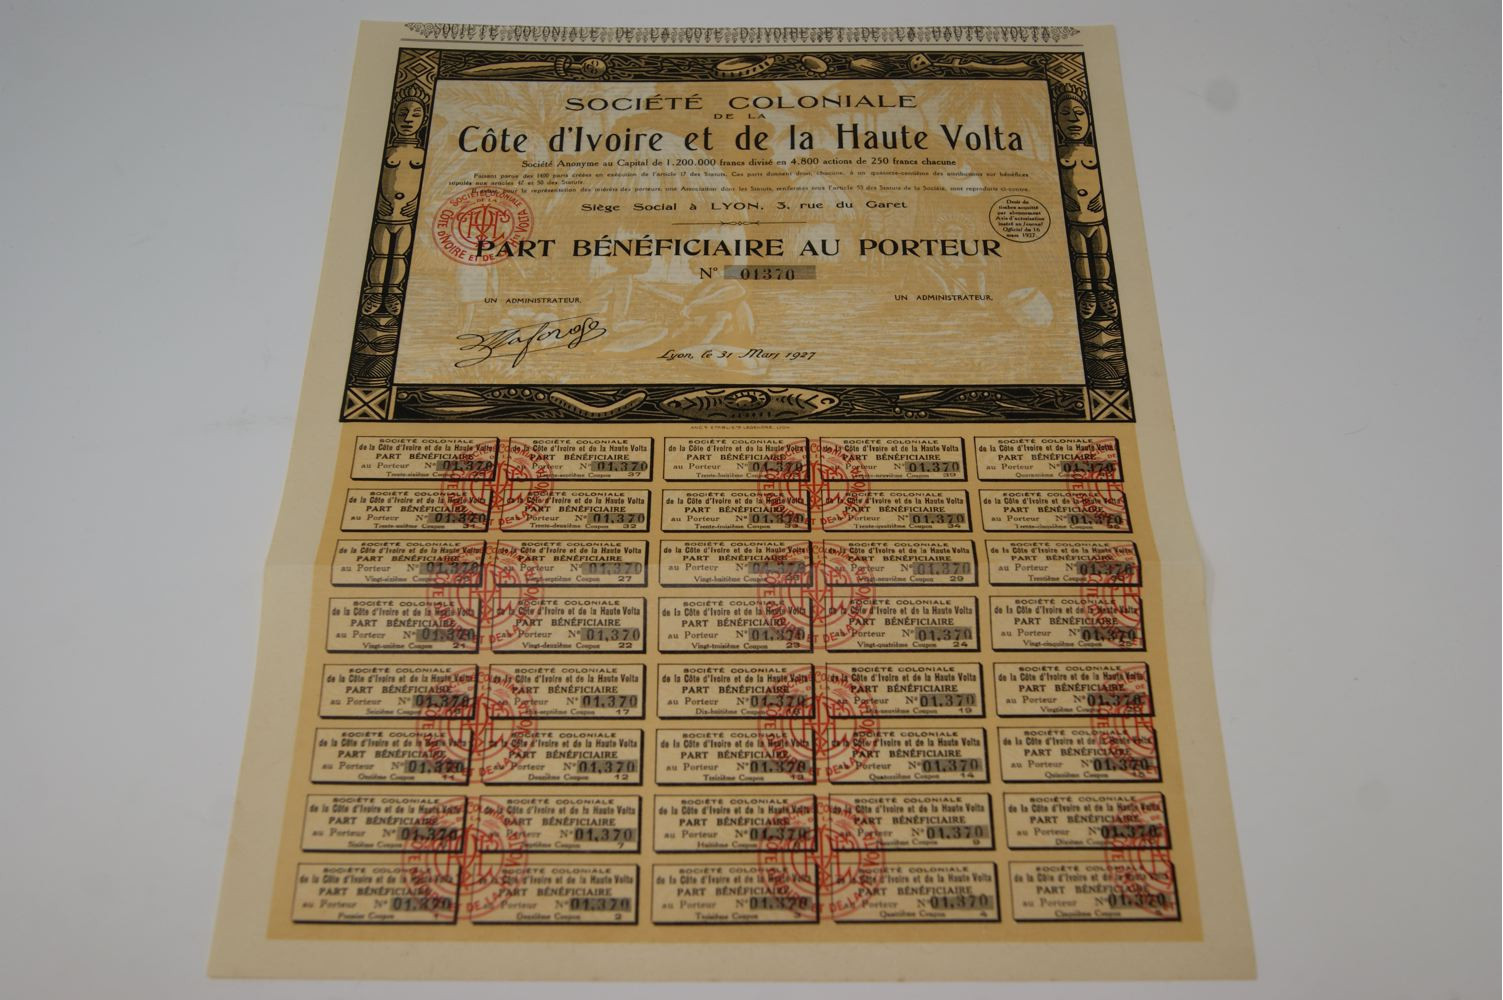 SOCIÉTÉ COLONIALE DE LA COTE D'IVOIRE ET DE LA HAUTE VOLTA
SOCIÉTÉ COLONIALE
DE LA
Côte d'Ivoire et de la Haute Volta
Société Anonyme au Capital de 1.200.000 francs divisé en 4.800 actions de 250 francs chacune
Faisant partie des 1400 parts créées en exécution de l'article 17 des Statuts. Ces parts donnent droit, chacune, à un quatorze-centième des attributions sur bénéfices
stipulés aux articles 47 et 50 des Statuts.
Il existe, pour la représentation des intérêts des porteurs, une Association dont les Statuts, renfermés sous l'article 53 des Statuts de la Société, sont reproduits ci-contre.
Siège Social à LYON, 3, rue du Garet
Droit de
timbre acquitté
par abonnement
Avis d'autorisation
inséré au Journal
Officiel du 16
mars 1927
SOCIÉTÉ COLONIALE
DE LA
CÔTE D'IVOIRE ET DE LA Hte VOLTA
PART BÉNÉFICIAIRE AU PORTEUR
N° 01370
UN ADMINISTRATEUR,
UN ADMINISTRATEUR,
Lyon, le 31 Mars 1927
SOCIÉTÉ COLONIALE
de la Côte d'Ivoire et de la Haute Volta
PART BÉNÉFICIAIRE
au Porteur N° 01,370
Trente-sixième Coupon
SOCIÉTÉ COLONIALE
de la Côte d'Ivoire et de la Haute Volta
PART BÉNÉFICIAIRE
au Porteur N° 01,370
Coupon 37
SOCIÉTÉ COLONIALE
de la Côte d'Ivoire et de la Haute Volta
PART BÉNÉFICIAIRE
au Porteur N° 01,370
Trente-huitième Coupon
SOCIÉTÉ COLONIALE
de la Côte d'Ivoire et de la Haute Volta
PART BÉNÉFICIAIRE
au Porteur N° 01,370
Trente-neuvième Coupon 39
SOCIÉTÉ COLONIALE
de la Côte d'Ivoire et de la Haute Volta
PART BÉNÉFICIAIRE
au Porteur N° 01,370
Quarantième Coupon
SOCIÉTÉ COLONIALE
de la Côte d'Ivoire et de la Haute Volta
PART BÉNÉFICIAIRE
au Porteur N° 01,370
Trente-unième Coupon 31
SOCIÉTÉ COLONIALE
de la Côte d'Ivoire et de la Haute Volta
PART BÉNÉFICIAIRE
au Porteur N° 01,370
Trente-deuxième Coupon 32
SOCIÉTÉ COLONIALE
de la Côte d'Ivoire et de la Haute Volta
PART BÉNÉFICIAIRE
au Porteur N° 01,370
Trente-troisième Coupon 33
SOCIÉTÉ COLONIALE
de la Côte d'Ivoire et de la Haute Volta
PART BÉNÉFICIAIRE
au Porteur N° 01,370
Trente-quatrième Coupon 34
SOCIÉTÉ COLONIALE
de la Côte d'Ivoire et de la Haute Volta
PART BÉNÉFICIAIRE
au Porteur N° 01,370
Trente-cinquième Coupon 35
SOCIÉTÉ COLONIALE
de la Côte d'Ivoire et de la Haute Volta
PART BÉNÉFICIAIRE
au Porteur N° 01,370
Vingt-sixième Coupon 26
SOCIÉTÉ COLONIALE
de la Côte d'Ivoire et de la Haute Volta
PART BÉNÉFICIAIRE
au Porteur N° 01,370
Vingt-septième Coupon 27
SOCIÉTÉ COLONIALE
de la Côte d'Ivoire et de la Haute Volta
PART BÉNÉFICIAIRE
au Porteur N° 01,370
Vingt-huitième Coupon
SOCIÉTÉ COLONIALE
de la Côte d'Ivoire et de la Haute Volta
PART BÉNÉFICIAIRE
au Porteur N° 01,370
Vingt-neuvième Coupon 29
SOCIÉTÉ COLONIALE
de la Côte d'Ivoire et de la Haute Volta
PART BÉNÉFICIAIRE
au Porteur N° 01,370
Trentième Coupon
SOCIÉTÉ COLONIALE
de la Côte d'Ivoire et de la Haute Volta
PART BÉNÉFICIAIRE
au Porteur N° 01,370
Vingt-unième Coupon 21
SOCIÉTÉ COLONIALE
de la Côte d'Ivoire et de la Haute Volta
PART BÉNÉFICIAIRE
au Porteur N° 01,370
Vingt-deuxième Coupon 22
SOCIÉTÉ COLONIALE
de la Côte d'Ivoire et de la Haute Volta
PART BÉNÉFICIAIRE
au Porteur N° 01,370
Vingt-troisième Coupon 23
SOCIÉTÉ COLONIALE
de la Côte d'Ivoire et de la Haute Volta
PART BÉNÉFICIAIRE
au Porteur N° 01,370
Vingt-quatrième Coupon 24
SOCIÉTÉ COLONIALE
de la Côte d'Ivoire et de la Haute Volta
PART BÉNÉFICIAIRE
au Porteur N° 01,370
Vingt-cinquième Coupon 25
SOCIÉTÉ COLONIALE
de la Côte d'Ivoire et de la Haute Volta
PART BÉNÉFICIAIRE
au Porteur N° 01,370
Seizième Coupon
SOCIÉTÉ COLONIALE
de la Côte d'Ivoire et de la Haute Volta
PART BÉNÉFICIAIRE
au Porteur N° 01,370
Dix-septième Coupon 17
SOCIÉTÉ COLONIALE
de la Côte d'Ivoire et de la Haute Volta
PART BÉNÉFICIAIRE
au Porteur N° 01,370
Dix-huitième Coupon 18
SOCIÉTÉ COLONIALE
de la Côte d'Ivoire et de la Haute Volta
PART BÉNÉFICIAIRE
au Porteur N° 01,370
Dix-neuvième Coupon 19
SOCIÉTÉ COLONIALE
de la Côte d'Ivoire et de la Haute Volta
PART BÉNÉFICIAIRE
au Porteur N° 01,370
Vingtième Coupon
SOCIÉTÉ COLONIALE
de la Côte d'Ivoire et de la Haute Volta
PART BÉNÉFICIAIRE
au Porteur N° 01,370
Onzième Coupon
SOCIÉTÉ COLONIALE
de la Côte d'Ivoire et de la Haute Volta
PART BÉNÉFICIAIRE
au Porteur N° 01,370
Douzième Coupon 12
SOCIÉTÉ COLONIALE
de la Côte d'Ivoire et de la Haute Volta
PART BÉNÉFICIAIRE
au Porteur N° 01,370
Treizième Coupon 13
SOCIÉTÉ COLONIALE
de la Côte d'Ivoire et de la Haute Volta
PART BÉNÉFICIAIRE
au Porteur N° 01,370
Quatorzième Coupon 14
SOCIÉTÉ COLONIALE
de la Côte d'Ivoire et de la Haute Volta
PART BÉNÉFICIAIRE
au Porteur N° 01,370
Quinzième Coupon 15
SOCIÉTÉ COLONIALE
de la Côte d'Ivoire et de la Haute Volta
PART BÉNÉFICIAIRE
au Porteur N° 01,370
Sixième Coupon
SOCIÉTÉ COLONIALE
de la Côte d'Ivoire et de la Haute Volta
PART BÉNÉFICIAIRE
au Porteur N° 01,370
Septième Coupon 7
SOCIÉTÉ COLONIALE
de la Côte d'Ivoire et de la Haute Volta
PART BÉNÉFICIAIRE
au Porteur N° 01,370
Huitième Coupon 8
SOCIÉTÉ COLONIALE
de la Côte d'Ivoire et de la Haute Volta
PART BÉNÉFICIAIRE
au Porteur N° 01,370
Neuvième Coupon 9
SOCIÉTÉ COLONIALE
de la Côte d'Ivoire et de la Haute Volta
PART BÉNÉFICIAIRE
au Porteur N° 01,370
Dixième Coupon
SOCIÉTÉ COLONIALE
de la Côte d'Ivoire et de la Haute Volta
PART BÉNÉFICIAIRE
au Porteur N° 01,370
Premier Coupon 1
SOCIÉTÉ COLONIALE
de la Côte d'Ivoire et de la Haute Volta
PART BÉNÉFICIAIRE
au Porteur N° 01,370
Deuxième Coupon 2
SOCIÉTÉ COLONIALE
de la Côte d'Ivoire et de la Haute Volta
PART BÉNÉFICIAIRE
au Porteur N° 01,370
Troisième Coupon 3
SOCIÉTÉ COLONIALE
de la Côte d'Ivoire et de la Haute Volta
PART BÉNÉFICIAIRE
au Porteur N° 01,370
Quatrième Coupon 4
SOCIÉTÉ COLONIALE
de la Côte d'Ivoire et de la Haute Volta
PART BÉNÉFICIAIRE
au Porteur N° 01,370
Cinquième Coupon